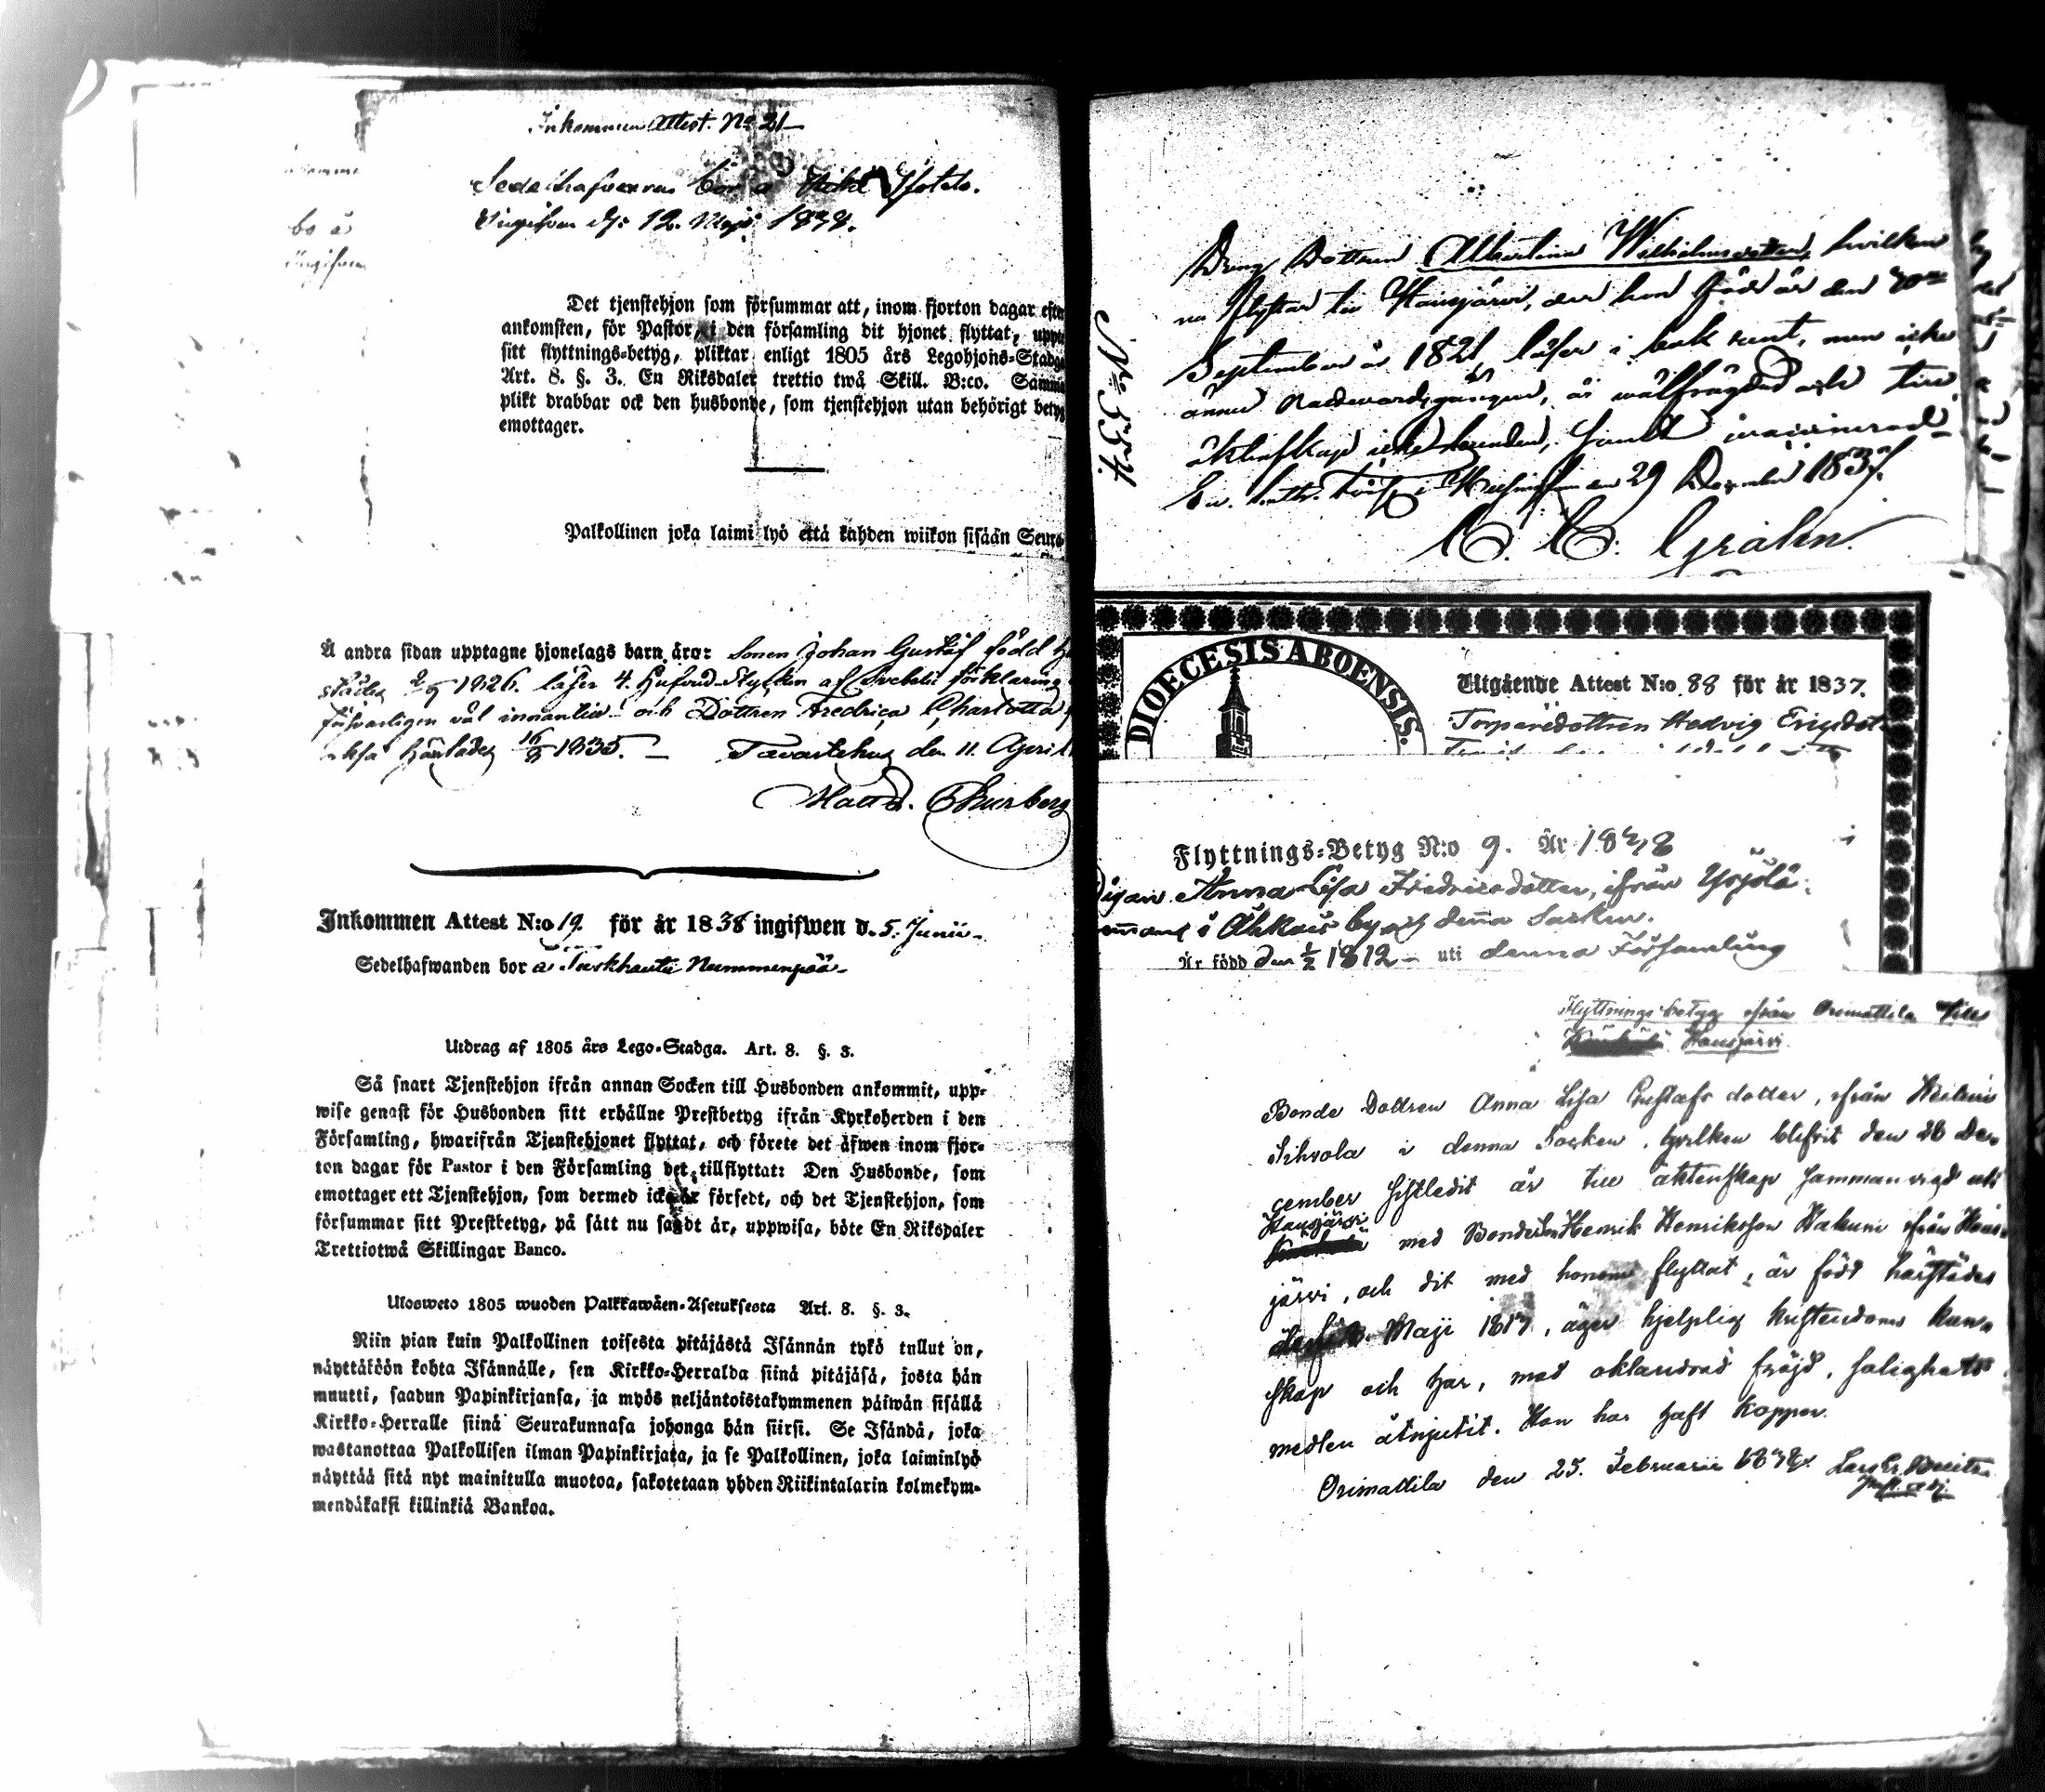 Inkommen Attest. No 21
Sedelhafvarena bor a
Ingifven d: 12. Maji 1838.
Det tjenstehjon som försummar att, inom fjorton dagar efter
ankomsten, för Pastor, i den församling dit hjonet flyttat, uppte
sitt flyttnings=betyg, pliktar enligt 1805 års Legohjons=Stadga
Art. 8. §. 3. En Riksdaler trettio twå Skill. B:co. Samma
plikt drabbar ock den husbonde, som tjenstehjon utan behörigt betyg
emottager.
Palkollinen joka laimi lyö että kahden wiikon sisään Seura
Å andra sidan upptagne hjonelags barn äro: Sonen Johan Gustaf född h
städes 2/9 1826. läser 4. Hufvud Stycken af Svebelii förklaring
försvarligen väl innantill och Dottren Fredrica Charlotta
också härstädes 16/8 1835. — Tavastehus den 11. April
Matth.
Inkommen Attest N:o 19. för år 1838 ingifwen d. 5. Junii
Sedelhafwanden bor a Turkhauta Nummenpää
Utdrag af 1805 års Lego=Stadga. Art. 8. §. 3.
Så snart Tjenstehjon ifrån annan Socken till Husbonden ankommit, upp=
wise genast för Husbonden sitt erhållne Prestbetyg ifrån Kyrkoherden i den
Församling, hwarifrån Tjenstehjonet flyttat, och förete det äfwen inom fjor=
ton dagar för Pastor i den Församling det tillflyttat: Den Husbonde, som
emottager ett Tjenstehjon, som dermed icke är försedt, och det Tjenstehjon, som
försummar sitt Prestbetyg, på sätt nu sagdt är, uppwisa, böte En Riksdaler
Trettiotwå Skillingar Banco.
Ulosweto 1805 wuoden Palkkawäen=Asetuksesta Art. 8. §. 3.
Niin pian kuin Palkollinen toisesta pitäjästä Isännän tykö tullut on,
näyttäköön kohta Isännälle, sen Kirkko=Herralda siinä pitäjäsä, josta hän
muutti, saadun Papinkirjansa, ja myös neljäntoistakymmenen päiwän sisällä
Kirkko=Herralle siinä Seurakunnasa johonga hän siirsi. Se Isändä, joka
wastanottaa Palkollisen ilman Papinkirjata, ja se Palkollinen, joka laiminlyö
näyttää sitä nyt mainitulla muotoa, sakotetaan yhden Riikintalarin kolmekym=
mendäkaksi killinkiä Bankoa.
No 554.
Dreng Dottren Albertina Wilhelmsdotter, hvilken
nu flyttar till Hausjärvi, der hon född är den
September år 1821, läser i bok rent, men icke
ännu Nattvardsgången, är wälfrägdad och till
äktenskap icke bunden, samt
29 December 1837.
C. C. Grahn.
DIOECESIS ABOENSIS.
Utgående Attest N:o 88 för år 1837.
Torparedottren Hedvig Ericsdot
Flyttnings=Betyg N:o 9. År 1838
Pigan Anna Lisa Fredricsdotter, ifrån Ypjölä
i Åhkois by och denna Socken.
Är född den 1/2 1812 — uti denna Församling
Flyttnings betyg ifrån Orimattila till
Hausjärvi.
Bonde Dottren Anna Lisa Gustafsdotter, ifrån
i denna Socken, hvilken blifvit den 26 De=
cember sistledit år till äktenskap sammanvigd uti
Hausjärvi
med Bondeson Henrik Henriksson ifrån Haus=
järvi, och dit med honom flyttat, är född härstädes
Maji 1817, äger hjelplig kristendoms kun=
skap och har, med oklandrad fräjd, salighets
medlen åtnjutit. Hon har haft koppor.
Orimattila den 25. Februarii 1838.